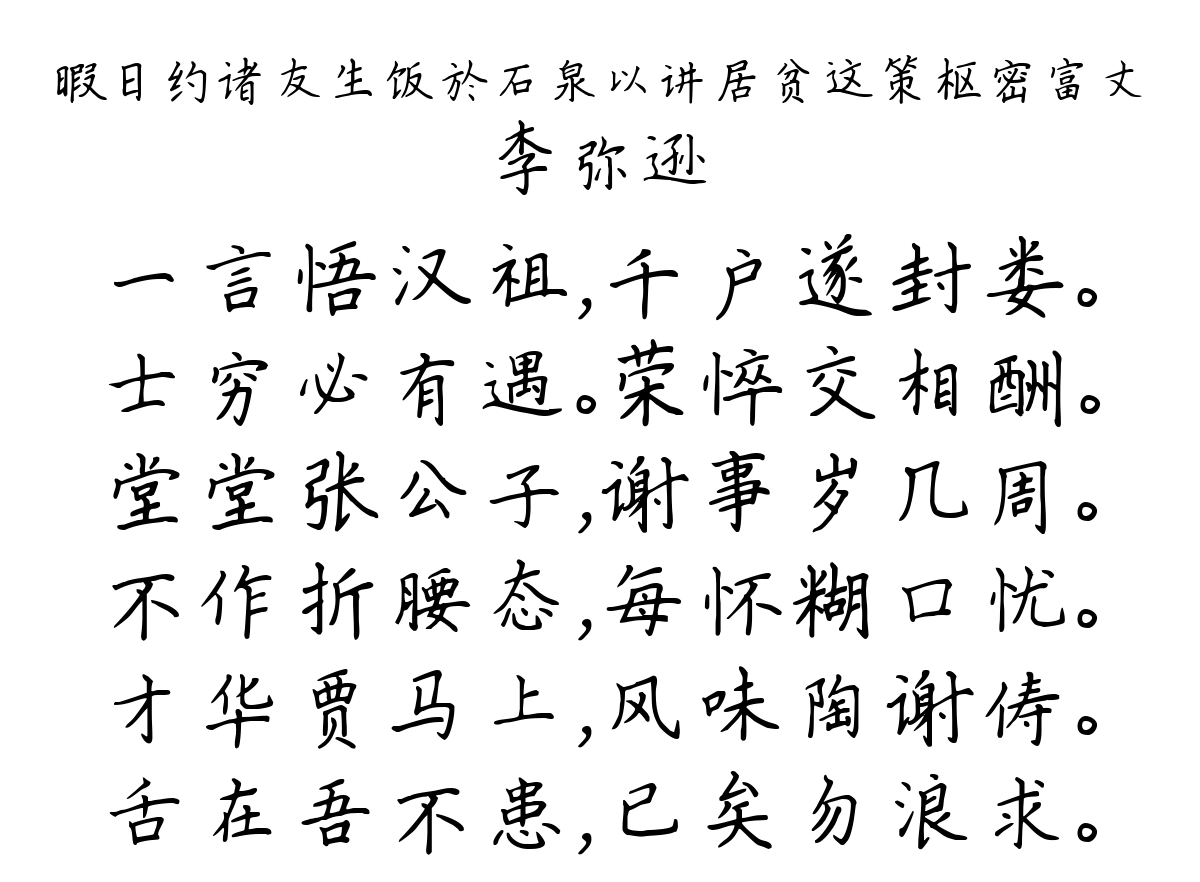 暇日约诸友生饭於石泉以讲居贫这策枢密富丈
李弥逊
一言悟汉祖,千户遂封娄。
士穷必有遇。荣悴交相酬。
堂堂张公子,谢事岁几周。
不作折腰态,每怀糊口忧。
才华贾马上,风味陶谢俦。
舌在吾不患,已矣勿浪求。